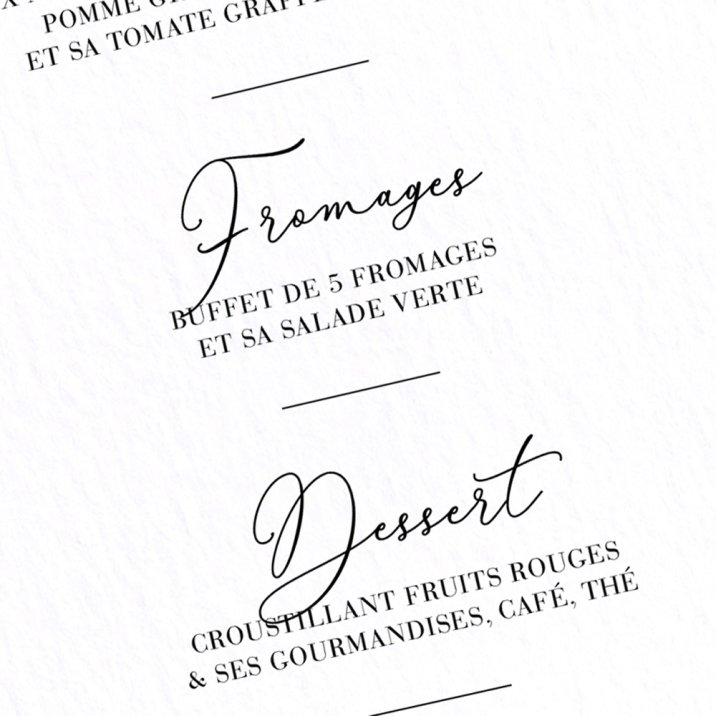 POMME
ET SA TOMATE
Fromages
BUFFET DE 5 FROMAGES
ET SA SALADE VERTE
Dessert
CROUSTILLANT FRUITS ROUGES
& SES GOURMANDISES, CAFÉ, THÉ